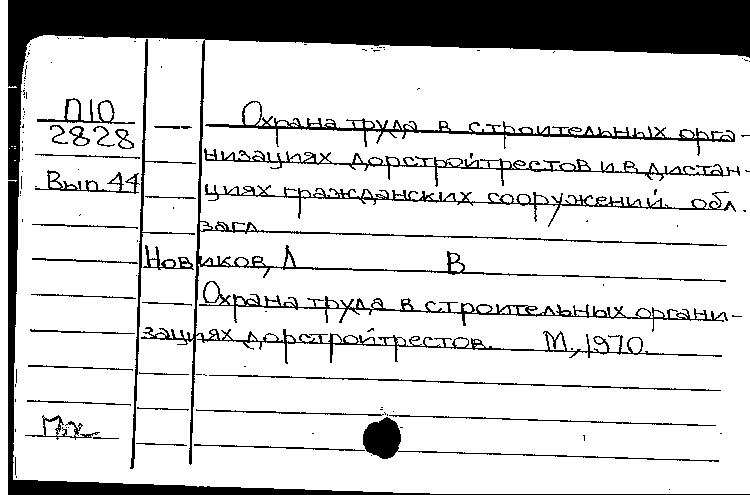 П10
2828
Вып. 44
Охрана труда в строительных орга-
низациях дорстройтрестов и в дистан-
циях гражданских сооружений. обл.
загл.
Новиков, Л В
Охрана труда в строительных органи-
зациях дорстройтрестов. М., 1970.